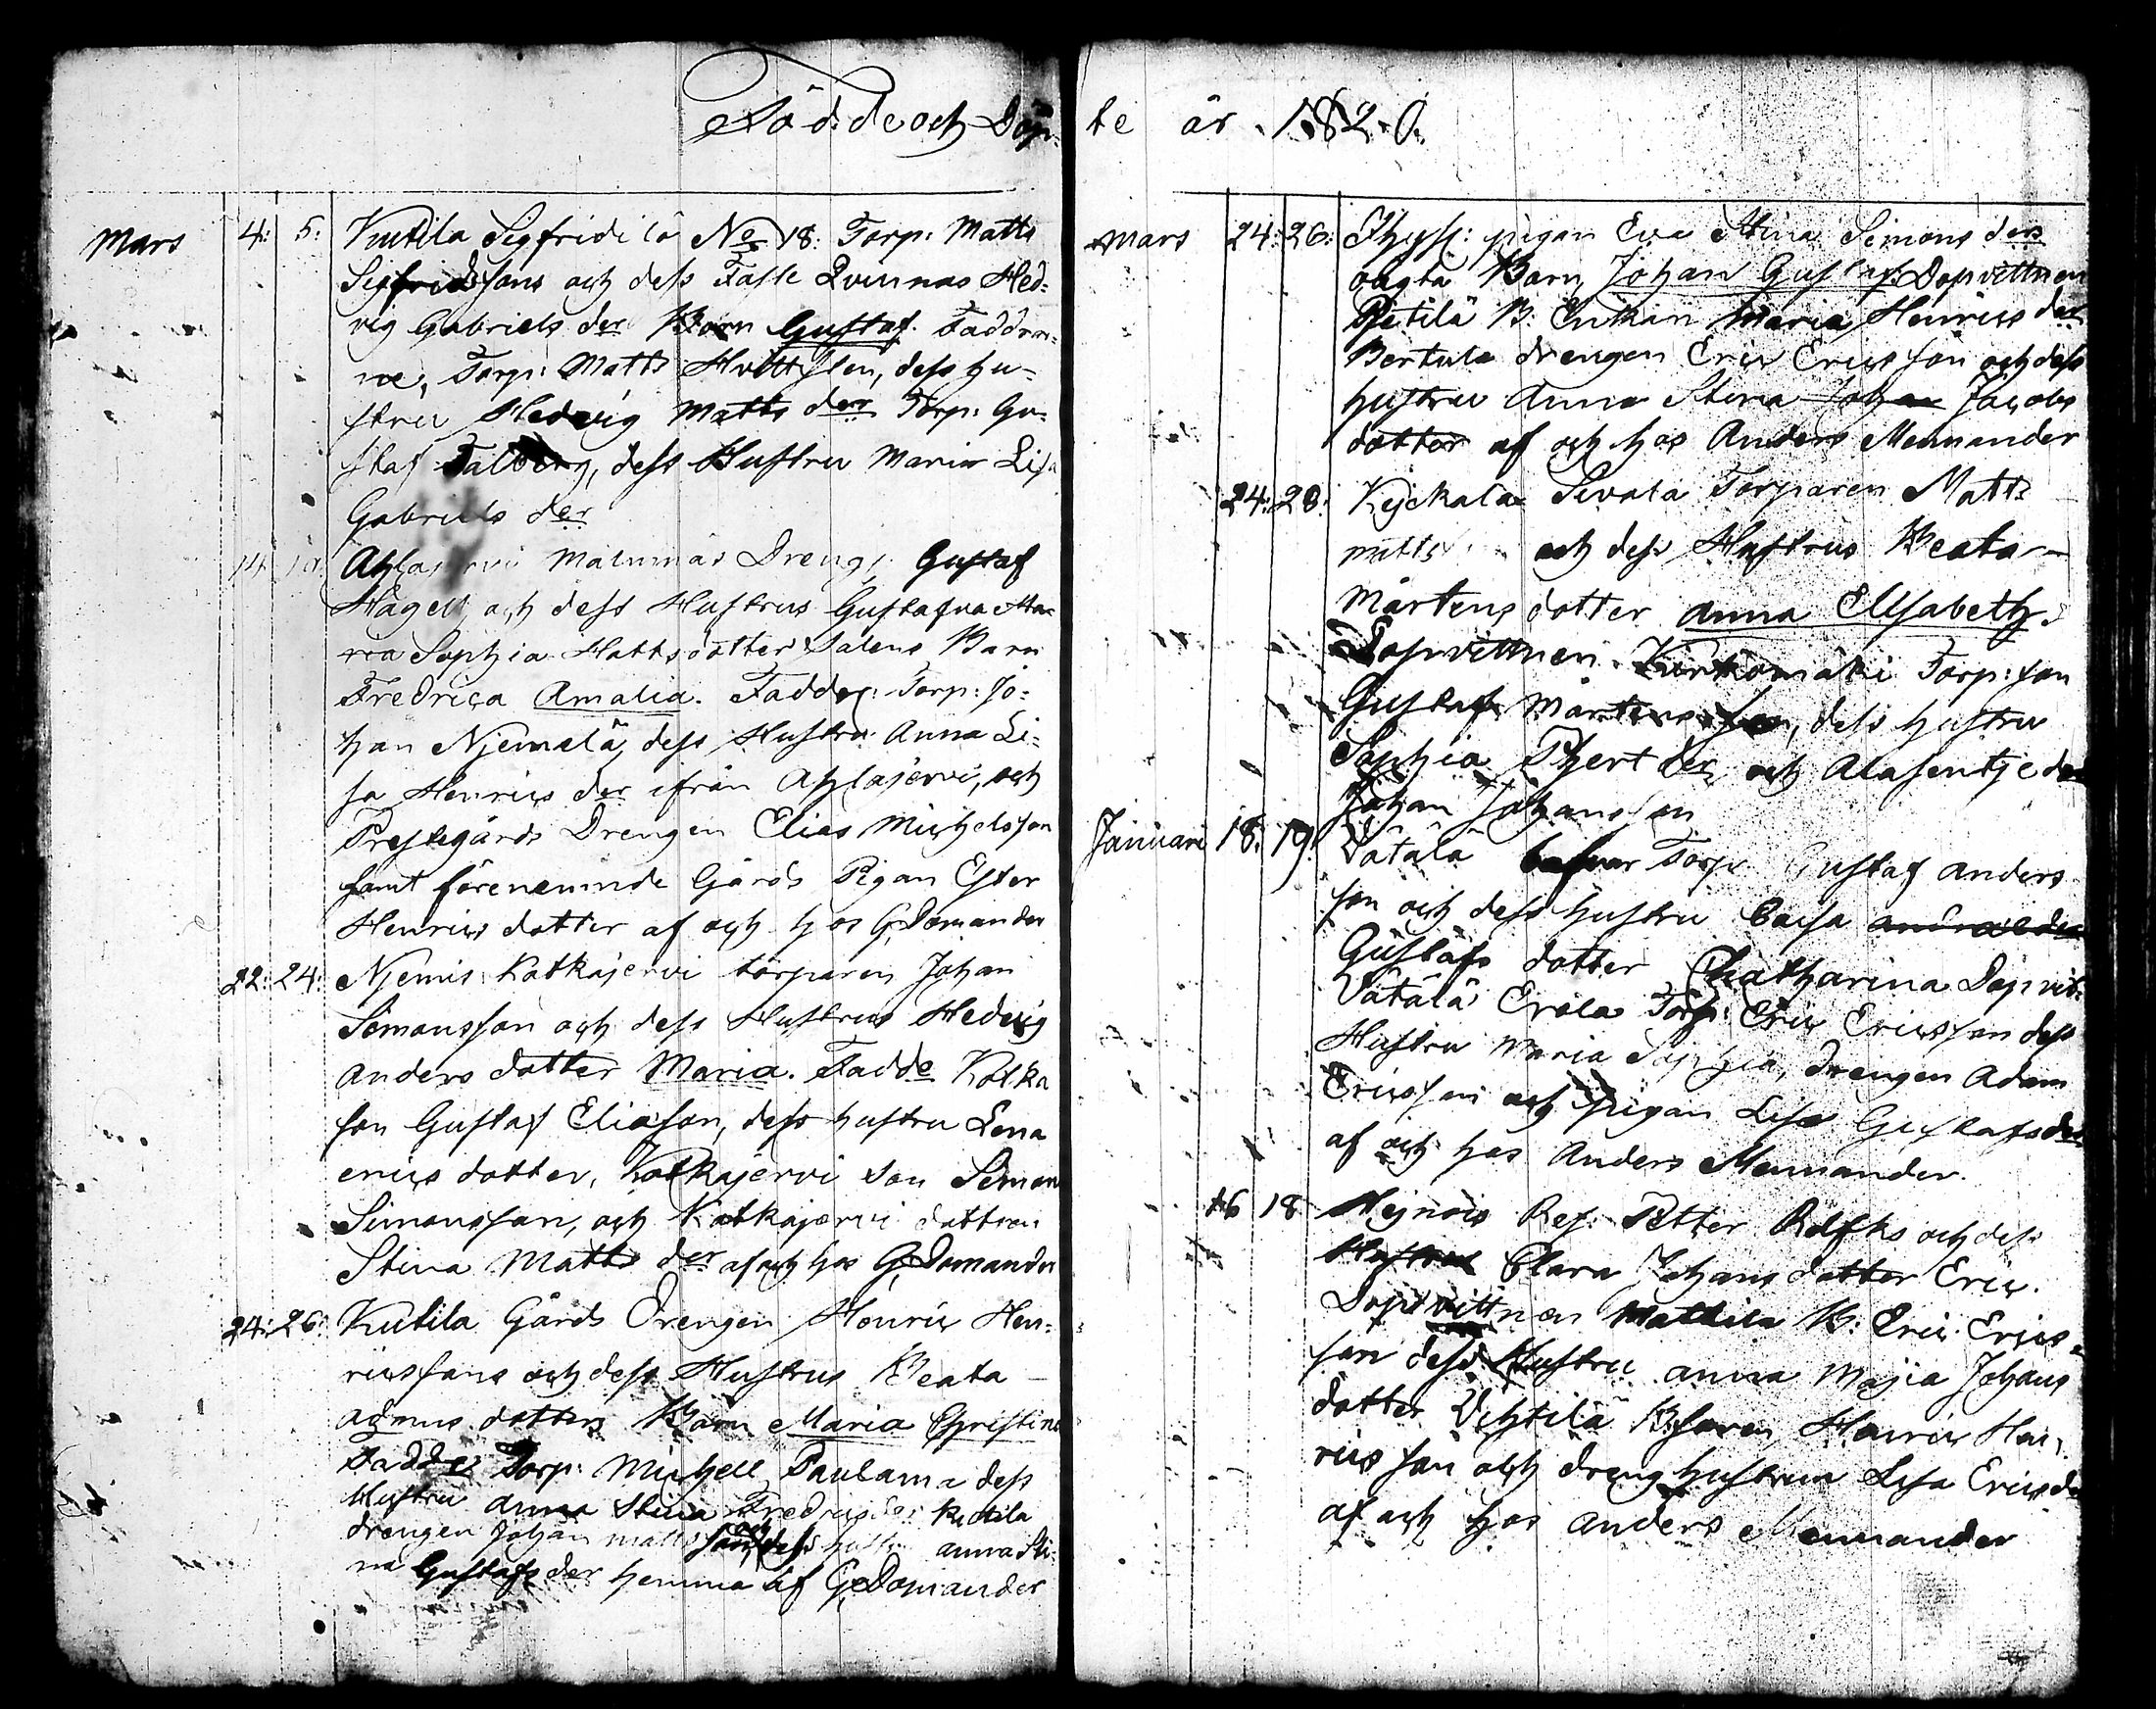 Födde och Döp-
Mars 4: 5: Kutila Sigfridi lä No 18: Torp: Matts
Sigfridssons och dess Fäste Qvinnas Hed-
vig Gabriels der Barn Gustaf. Faddrar-
ne, Torp: Matts dess hu-
stru Hedvig Matts der Torp: Gu-
staf Talberg, dess Hustru Maria Lisa
Gabriels der
14 Drengs Gustaf
Hägell och dess Hustrus Gustafva Ma-
ria Sophia Mattsdotter Salens Barn
Fredrica Amalia. Fadder: Torp: Jo-
han Njemelä, dess Hustru Anna Li-
sa Henrics der ifrån Ahlajervi, och
Prestegårds Drengen Elias Michelsson
samt förenemnde Gårds Pigan Ester
Henrics dotter af och hos G. Domander
22: 24: Njemis Kotkajervi torparen Johan
Simonsson och dess Hustrus Hedvig
Anders dotter Maria. Fadde Kotka
son Gustaf Eliason, dess hustru Lena
erics dotter, Kotkajervi son Simon
Simonsson, och Kotkajervi dottren
Stina Matts der af och hos G. Domander
24: 26: Kutila Gårds Drengen Henric Hen-
ricssons och dess Hustrus Beata
dotters Barn Maria Christina
Fadde Torp: Michell Paulama dess
Hustru Anna Stina Fredricsder Kutila
drengen Johan Matts son, och dess hustru anna Sti-
na Gustafs der hemma af G. Domander
te år 1820.
Mars 24: 26: pigan Eva Stina Simons ders
oägta Barn, Johan Gustaf: Dopvittnen
Pjetilä B. Enkan Maria Henrics der
Bertula drengen Eric Ericsson och dess
hustru Anna Stina Johan Jacobs
dotter af och hos Anders Mennander
24: 28: Kejckala Sivola Torparen Matts
och dess Hustrus Beata
Mårtens dotter Anna Elisabeth.
Dopvittnen. Kurkomäki Torp: son
Gustaf Mårtensson, dess hustru
Sophia der och
Johan Johansson
Januari 18: 19: Vätälä Torp: Gustaf Anders
son och dess hustru Caisa
Gustafs dotter Chatharina Dopvit:
Vätälä Erola Torp: Eric Ericsson dess
Hustru Maria Sophia, drengen Adam
Ericsson och pigan Lisa Gustafsder
af och hos Anders Mennander.
16 18 Hejnois Petter och dess
Hustru Clara Johans dotter Eric.
Dopvittnen Mattila B: Eric Erics-
son dess Hustru anna Majia Johans
dotter Vihtilä B:sonen, Henric Hen-
rics son och dreng hustrun Lisa Ericsder
af och hos Anders Mennander